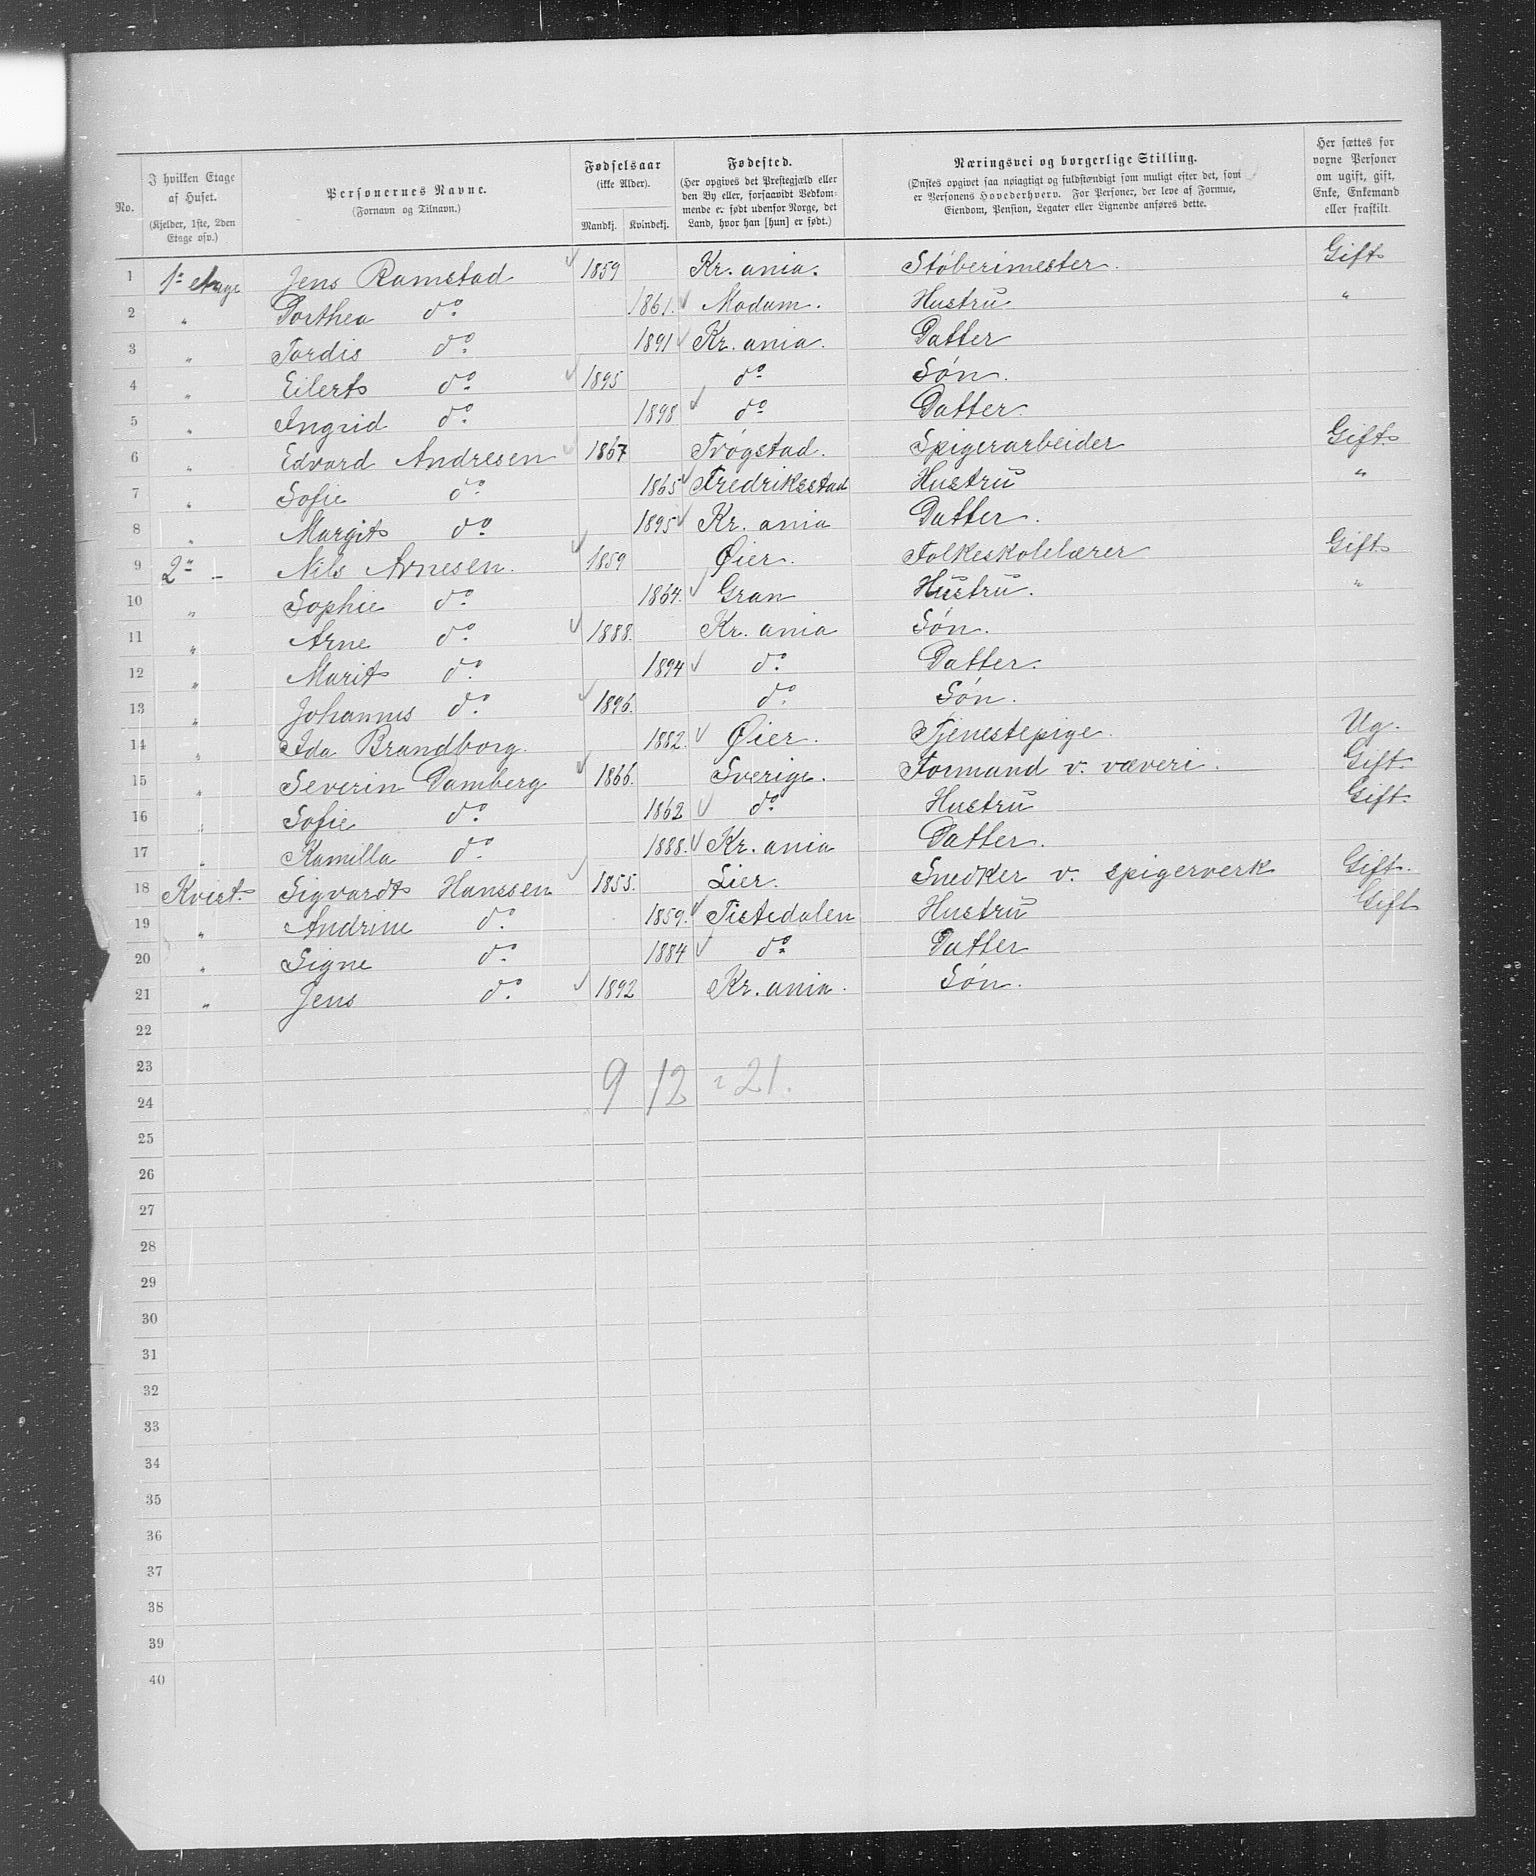 No.
I hvilken Etage af Huset.
(Kjelder, 1ste, 2den Etage osv.)
Personernes Navne.
(Fornavn og Tilnavn.)
Fødselsaar
(ikke Alder).
Mandkj. Kvindekj.
Fødested.
(Her opgives det Prestegjæld eller den By eller, forsaavidt Vedkommende er født udenfor Norge, det Land, hvor han [hun] er født.)
Næringsvei og borgerlige Stilling.
(Ønskes opgivet saa nøiagtigt og fuldstændigt som muligt efter det, som er Personens Hovederhverv. For Personer, der leve af Formue, Eiendom, Pension, Legater eller Lignende anføres dette.
Her sættes for voxne Personer om ugift, gift, Enke, Enkemand eller fraskilt.
1 1ˢ etage Jens Ramstad 1859 Kr.ania. Støberimester. Gift
2 " Dorthea dº 1861. Modum. Hustru "
3 " Tordis dº 1891 Kr. ania. Datter
4 " Eilert dº 1895 dº Søn.
5 " Ingrid dº 1898 dº Datter.
6 " Edvard Andresen 1867 Trøgstad. Spigerarbeider Gift
7 " Sofie dº 1865 Fredriksstad Hustru "
8 " Margit dº 1895 Kr. ania Datter.
9 2ⁿ – Nils Arnesen. 1859 Øier. Folkeskolelærer Gift
10 " Sophie dº 1864. Gran Hustru. "
11 " Arne dº 1888. Kr. ania Søn.
12 " Marit dº 1894 dº Datter.
13 " Johannes dº 1896. dº Søn.
14 " Ida Brandborg. 1882. Øier. Tjenestepige. Ug.
15 " Severin Damberg 1866. Sverige. Formand v. væveri. Gift.
16 " Sofie dº 1862 dº Hustru Gift.
17 " Kamilla dº 1888. Kr. ania Datter.
18 Kvist. Sigvardt Hanssen 1855. Lier. Snedker v. spigerverk Gift.
19 " Andrine dº 1859. Tistedalen Hustru Gift
20 " Signe dº 1884 dº Datter
21 " Jens dº 1892 Kr. ania. Søn.
22
23
9 12 = 21.
24
25
26
27
28
29
30
31
32
33
34
35
36
37
38
39
40